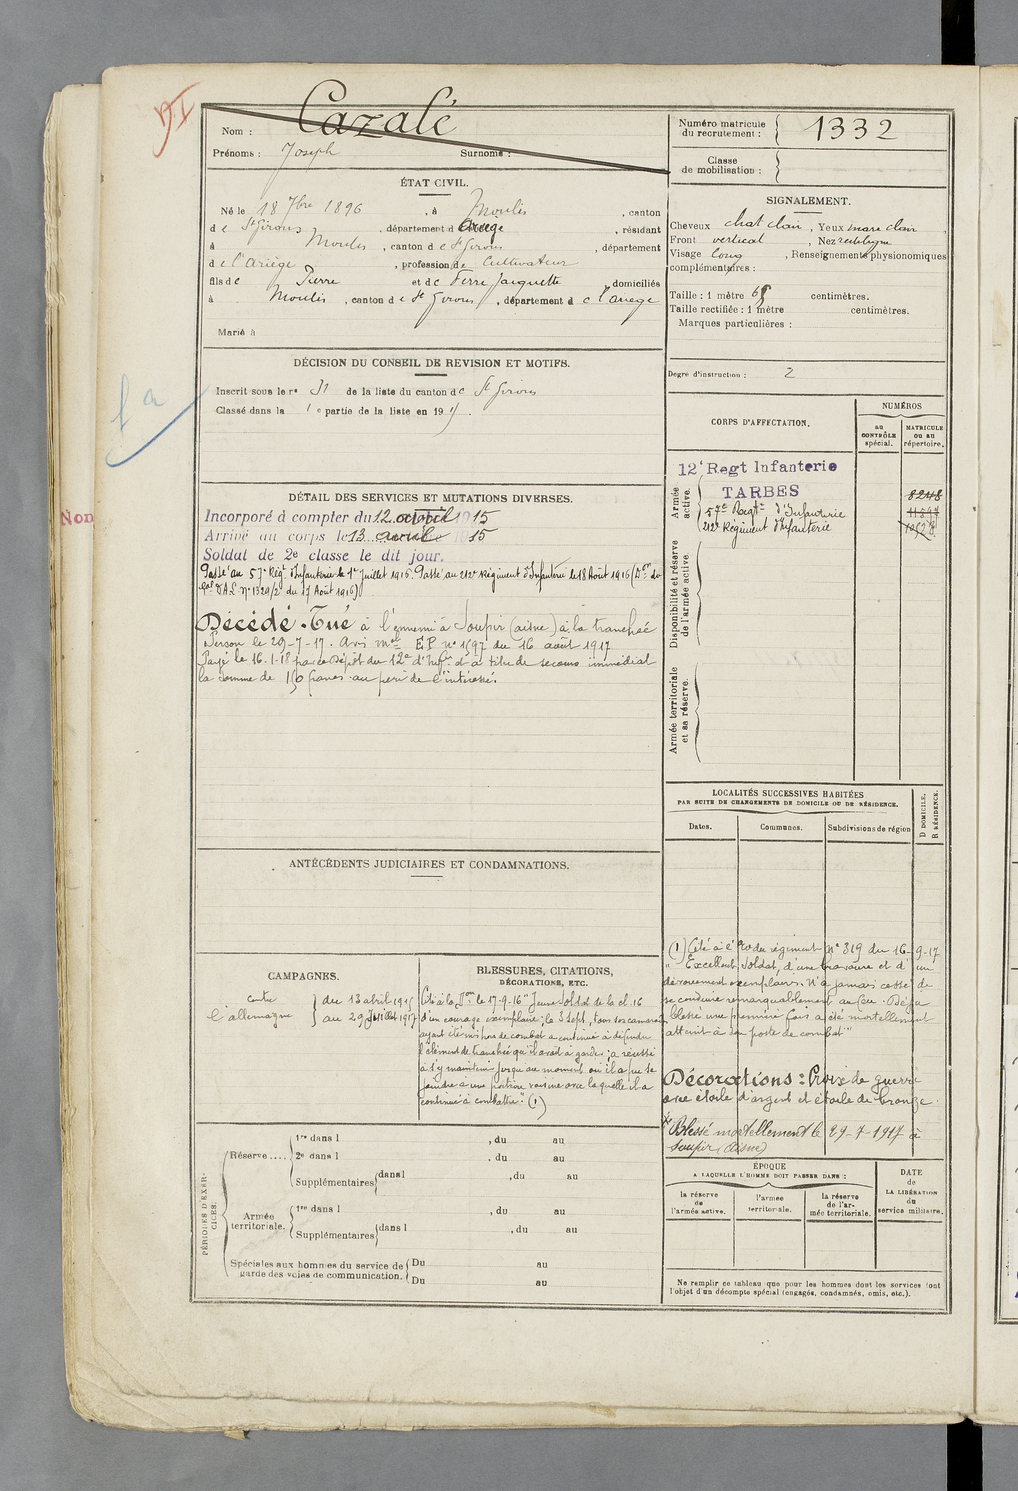 Nom : Cazalé
Prénoms : Joseph Surnoms :
Numéro matricule du recrutement : 1332
Classe de mobilisation :
ÉTAT CIVIL.
Né le 18 7bre 1896, à Moulis, canton
de St Girons, département d Ariège, résidant
à Moulis, canton de St Girons, département
de l'Ariège, profession de Cultivateur
fils de Pierre et de Ferré Jaquette domiciliés
à Moulis, canton de St Girons, département de l'Ariège
Marié à
SIGNALEMENT.
Cheveux chat clair, Yeux clair
Front vertical, Nez rectiligne
Visage long, Renseignements physionomiques
complémentaires :
Taille : 1 mètre centimètres.
Taille rectifiée : 1 mètre centimètres.
Marques particulières :
Degré d'instruction : 2
DÉCISION DU CONSEIL DE REVISION ET MOTIFS.
Inscrit sous le n° 31 de la liste du canton de St Girons
Classé dans la 1e partie de la liste en 19
CORPS D'AFFECTATION.
NUMÉROS
au CONTRÔLE spécial.
MATRICULE ou au répertoire.
Armée active.
12e Regt Infanterie
TARBES 8248
57e Regt d'Infanterie
212e Régiment d'Infanterie
Disponibilité et réserve de l'armée active.
Armée territoriale et sa réserve.
Non
DÉTAIL DES SERVICES ET MUTATIONS DIVERSES.
Incorporé à compter du 12 avril 1915
Arrivé au corps le 13 avril 1915
Soldat de 2e classe le dit jour.
Passé au 57e Régt d'Infanterie le 1er Juillet 1916. Passé au 212e Régiment d'Infanterie le 18 Août 1916 (Don du
D.A.L. n° 1329/2 du 17 Août 1916)
Décédé. Tué à l'ennemi à Soupir (aisne) à la tranchée
Person le 29-7-17. Avis mel E.P. n° 1697 du 16 août 1917
Payé le 16-1-18 par le Dépôt du 12e d'Infie à titre de secours immédiat
la somme de 150 francs au père de l'intéressé.
LOCALITÉS SUCCESSIVES HABITÉES
PAR SUITE DE CHANGEMENTS DE DOMICILE OU DE RÉSIDENCE.
Dates.
Communes.
Subdivisions de région
D DOMICILE.
R RÉSIDENCE.
ANTÉCÉDENTS JUDICIAIRES ET CONDAMNATIONS.
CAMPAGNES.
contre
l'allemagne
du 13 avril 1915
au 29 Juillet 1917
BLESSURES, CITATIONS,
DÉCORATIONS, ETC.
Cité à la le 17-9-16 "Jeune Soldat de la cl. 16
d'un courage exemplaire; le 3 Sept, tous ses camarades
ayant été mis hors de combat a continué à défendre
l'élément de tranchée qu'il avait à garder; a réussi
à s'y maintenir jusqu'au moment où il a pu se
joindre à une portion voisine avec laquelle il a
continué à combattre." (1)
(1) Cité à l'O. du régiment n° 319 du 16-9-17
"Excellent Soldat, d'une bravoure et d'un
dévouement exemplaires. N'a jamais cessé de
se conduire remarquablement au feu. Déjà
blessé une première fois a été mortellement
atteint à son poste de combat"
Décorations : Croix de guerre
avec étoile d'argent et étoile de bronze.
Blessé mortellement le 29-7-1917 à
Soupir (Aisne)
PÉRIODES D'EXERCICES.
Réserve....
1re dans l , du au
2e dans l , du au
Supplémentaires dans l , du au
Armée territoriale.
1re dans l , du au
Supplémentaires dans l , du au
Spéciales aux hommes du service de garde des voies de communication.
Du au
Du au
ÉPOQUE
A LAQUELLE L'HOMME DOIT PASSER DANS :
la réserve de l'armée active.
l'armée territoriale.
la réserve de l'armée territoriale.
DATE de LA LIBÉRATION du service militaire.
Ne remplir ce tableau que pour les hommes dont les services font
l'objet d'un décompte spécial (engagés, condamnés, omis, etc.).